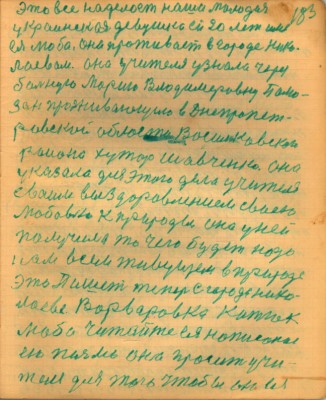 183
Это все наделает наша молодая
украинская девушка ей 20 лет имя
ея Люба. она проживает в городе Нико-
лаевам. она учителя узнала через
больную Марию Владимировну
проживающую в Днепропет-
ровской области Васильковского
района хутор Шевченко. она
указала для этого дела учителя
своим выздоровлением своею
любовью к природи она у ней
получила то чего будет надо
нам всем живущем в природе
это Пишет теперь с города нико-
лаеве Варваровка
Люба Читайте ея написаное
ею письмо она просит учи-
теля для того чтобы он ея